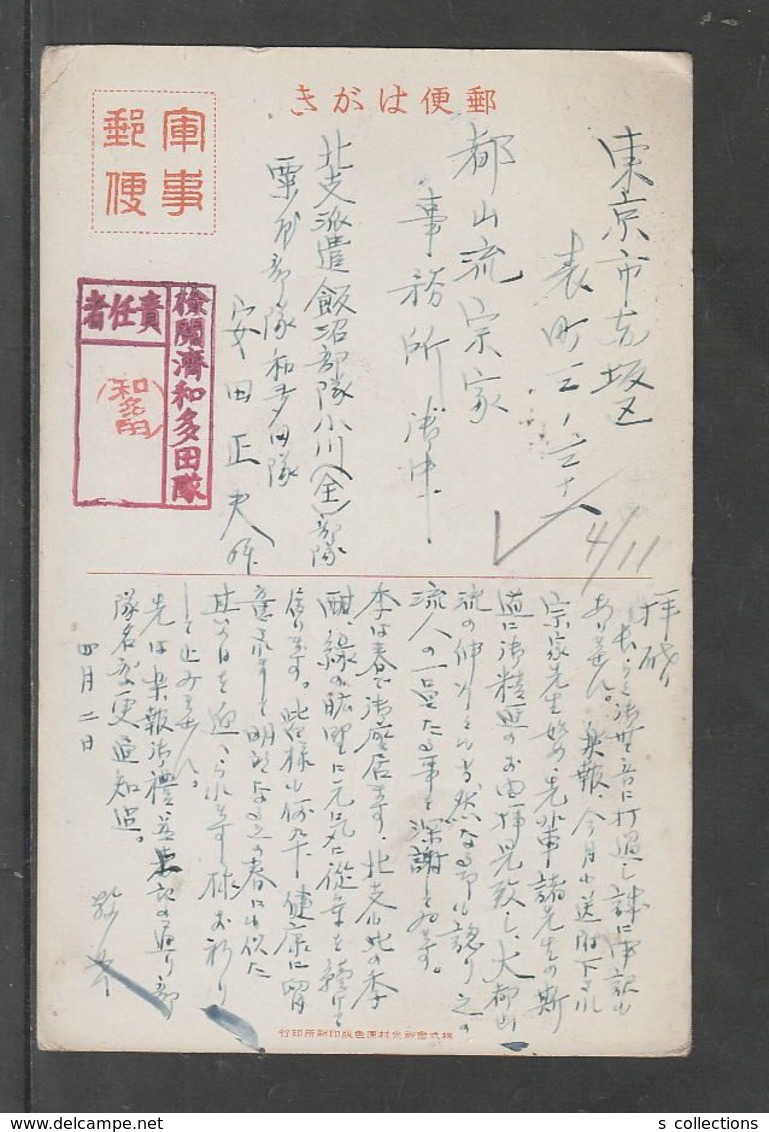 郵便はがき
軍事
郵便
東京市赤坂区
表町三ノ三十
都山流宗家
事務所 御中
北支派遣飯沼部隊小川(全)部隊
栗原部隊和多田隊
安田正夫
検閲済和多田隊
責任者
和多田
4/11
拝啓
長らく御無音に打過し誠に申訳も
ありません。楽報、今月も送附下され
宗家先生始め
諸先生の斯
道に御精進のお由拝見致し、大都山
流の
流人の一員たる事を深謝し
季は春で御座居ます、北支も此の季
元気に従軍を続けて
居ります。皆様も何卒健康に留
意されまして明朗なる之の春にも似た
其の日を迎へられます様お祈り
して止みません。
先は楽報御礼
表記の通り部
隊名変更通知迄。
敬具
四月二日
s collections